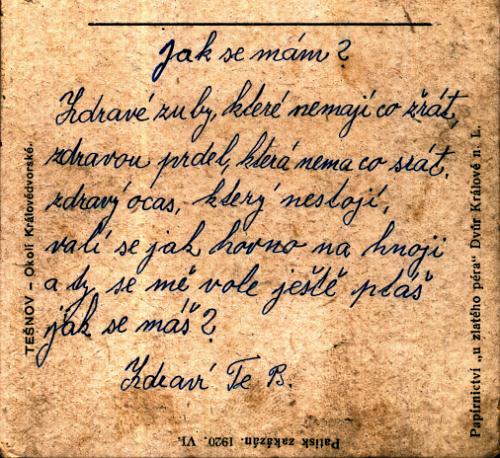 Jak se mám?
Zdravé zuby, které nemají co žřát,
zdravou prdel, která nema co srát,
zdravý ocas, který nestojí,
valí se jak hovno na hnoji
a ty se mě vole ještě ptaš
jak se máš?
Zdraví Te B.
TEŠNOV – Okolí Královédvorské.
Papírnictví „u zlatého péra" Dvůr Králové n. L.
Patisk zakázán. 1920. VI.